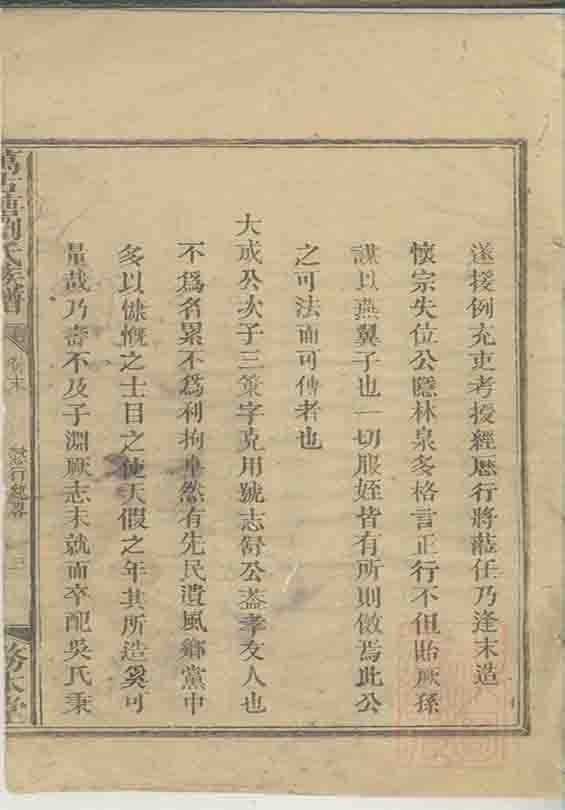 遂援例充吏考授經歷行將蒞任乃逢末造
懷宗失位公隱林泉多格言正行不但貽厥孫
謀以燕翼子也一切服姪皆有所則傚焉此公
之可法而可傳者也
大成公次子三策字克用號志舒公蓋孝友人也
不爲名累不爲利拘卓然有先民遺風鄉黨中
多以慷慨之士目之使天假之年其所造奚可
量哉乃壽不及子淵厥志未就而卒配吳氏秉
劉氏族譜
懿行總畧
三
務本堂